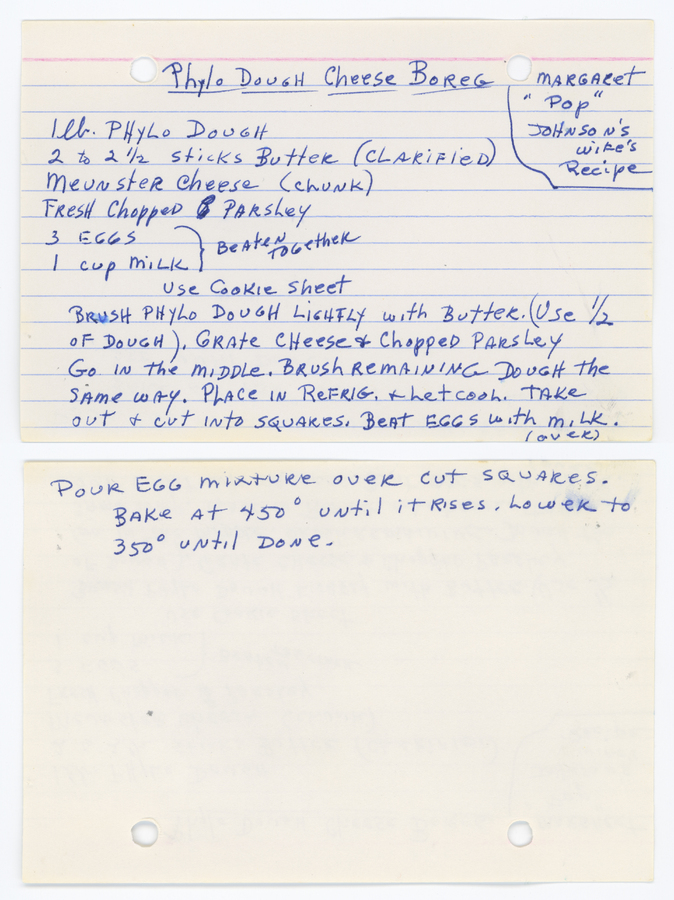 Phylo Dough Cheese Boreg
MARGARET
"Pop"
JOHNSON'S
wife's
Recipe
1 lb. PHYLO DOUGH
2 to 2 1/2 sticks Butter (CLARIFIED)
Meunster Cheese (chunk)
FRESH Chopped PARSLEY
3 EGGS
1 cup MILK
BEATEN TOGETHER
USE COOKIE SHEET
BRUSH PHYLO DOUGH LIGHTLY with BUTTER. (USE 1/2
OF DOUGH). GRATE CHEESE & Chopped PARSLEY
GO IN the MIDDLE. BRUSH REMAINING DOUGH the
SAME WAY. PLACE IN REFRIG. & let cool. TAKE
OUT & CUT INTO SQUARES. BEAT EGGS with MILK.
(over)
POUR EGG MIXTURE OVER CUT SQUARES.
BAKE AT 450° UNTIL it RISES. LOWER to
350° UNTIL DONE.